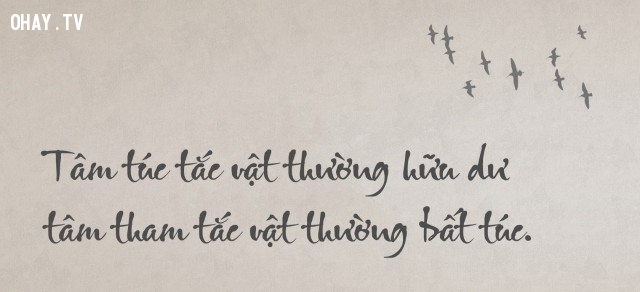 OHAY.TV
Tâm túc tắc vật thường hữu dư
tâm tham tắc vật thường bất túc.